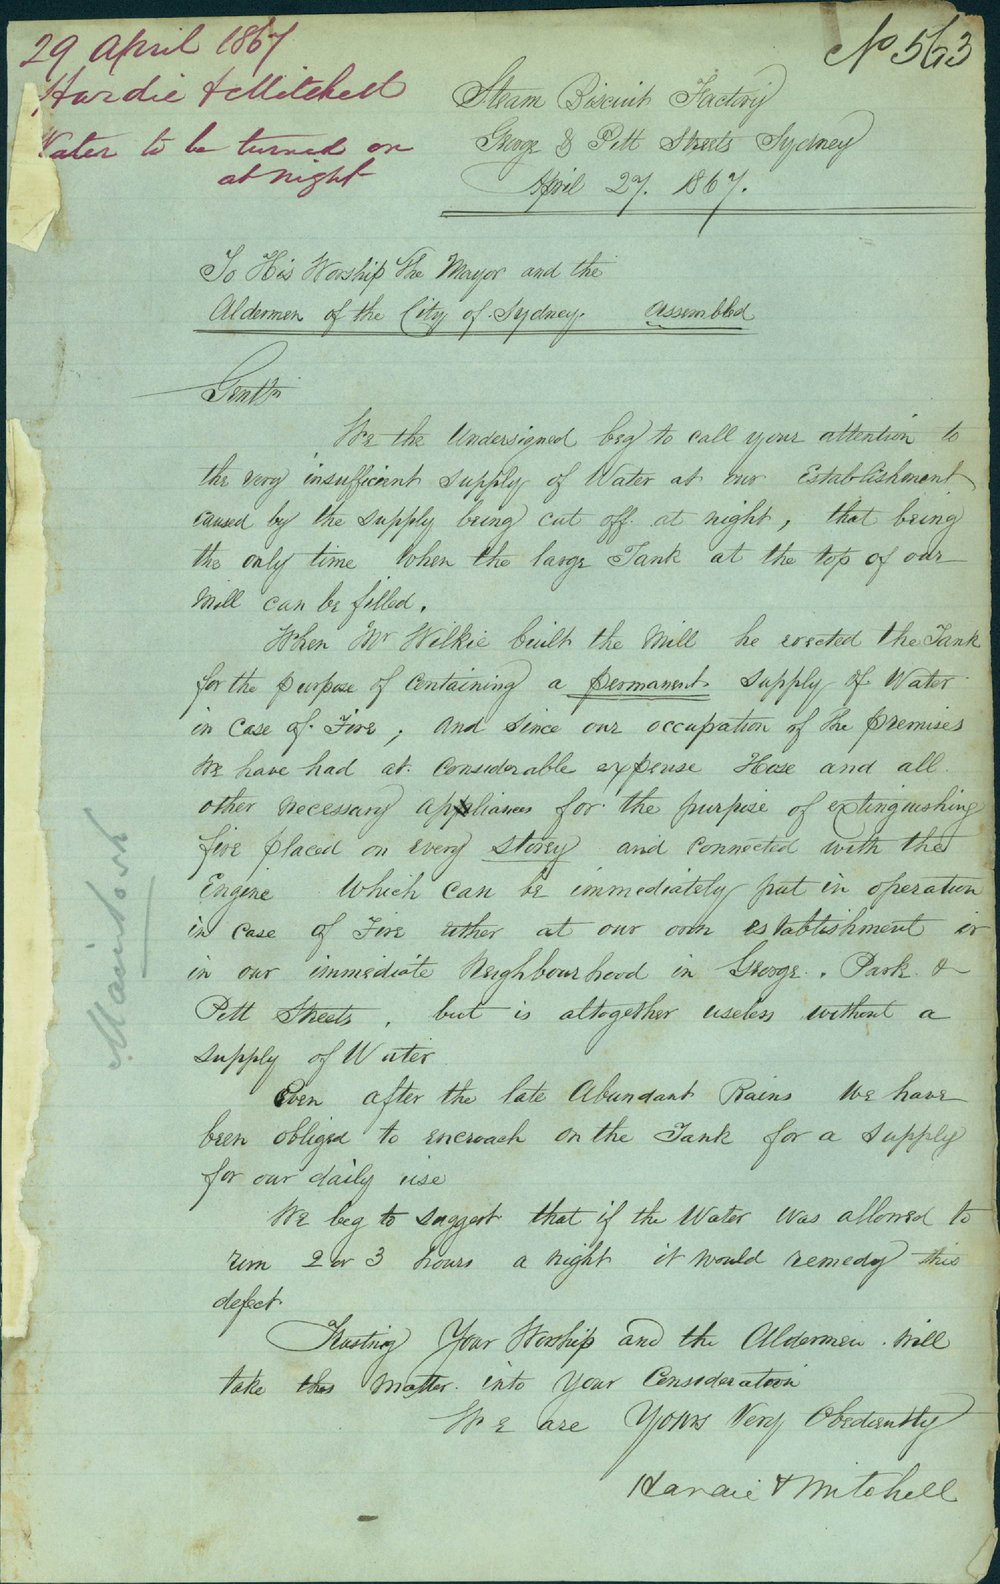 29 April 1867
Hardie & Mitchell
Water to be turned on
at night
No 563
Steam Biscuit Factory
George & Pitt Streets Sydney
April 27. 1867.
To His Worship The Mayor and the
Aldermen of the City of Sydney. Assembled
Gentn
We the Undersigned beg to call your attention to
the very insufficient supply of Water at our Establishment
caused by the supply being cut off at night, that being
the only time when the large Tank at the top of our
Mill can be filled.
When Mr Wilkie built the Mill he erected the Tank
for the purpose of containing a permanent supply of Water
in case of Fire, and since our occupation of the premises
we have had at considerable expense Hose and all
other necessary appliances for the purpose of extinguishing
fire placed on every storey and connected with the
Engine which can be immediately put in operation
in case of Fire either at our own establishment or
in our immediate Neighbourhood in George, Park &
Pitt Streets, but is altogether useless without a
supply of Water
Even after the late Abundant Rains we have
been obliged to encroach on the Tank for a supply
for our daily use
We beg to suggest that if the Water was allowed to
run 2 or 3 hours a night it would remedy this
defect
Trusting Your Worship and the Aldermen will
take this Matter into Your Consideration
We are Yours Very Obediently
Hardie & Mitchell